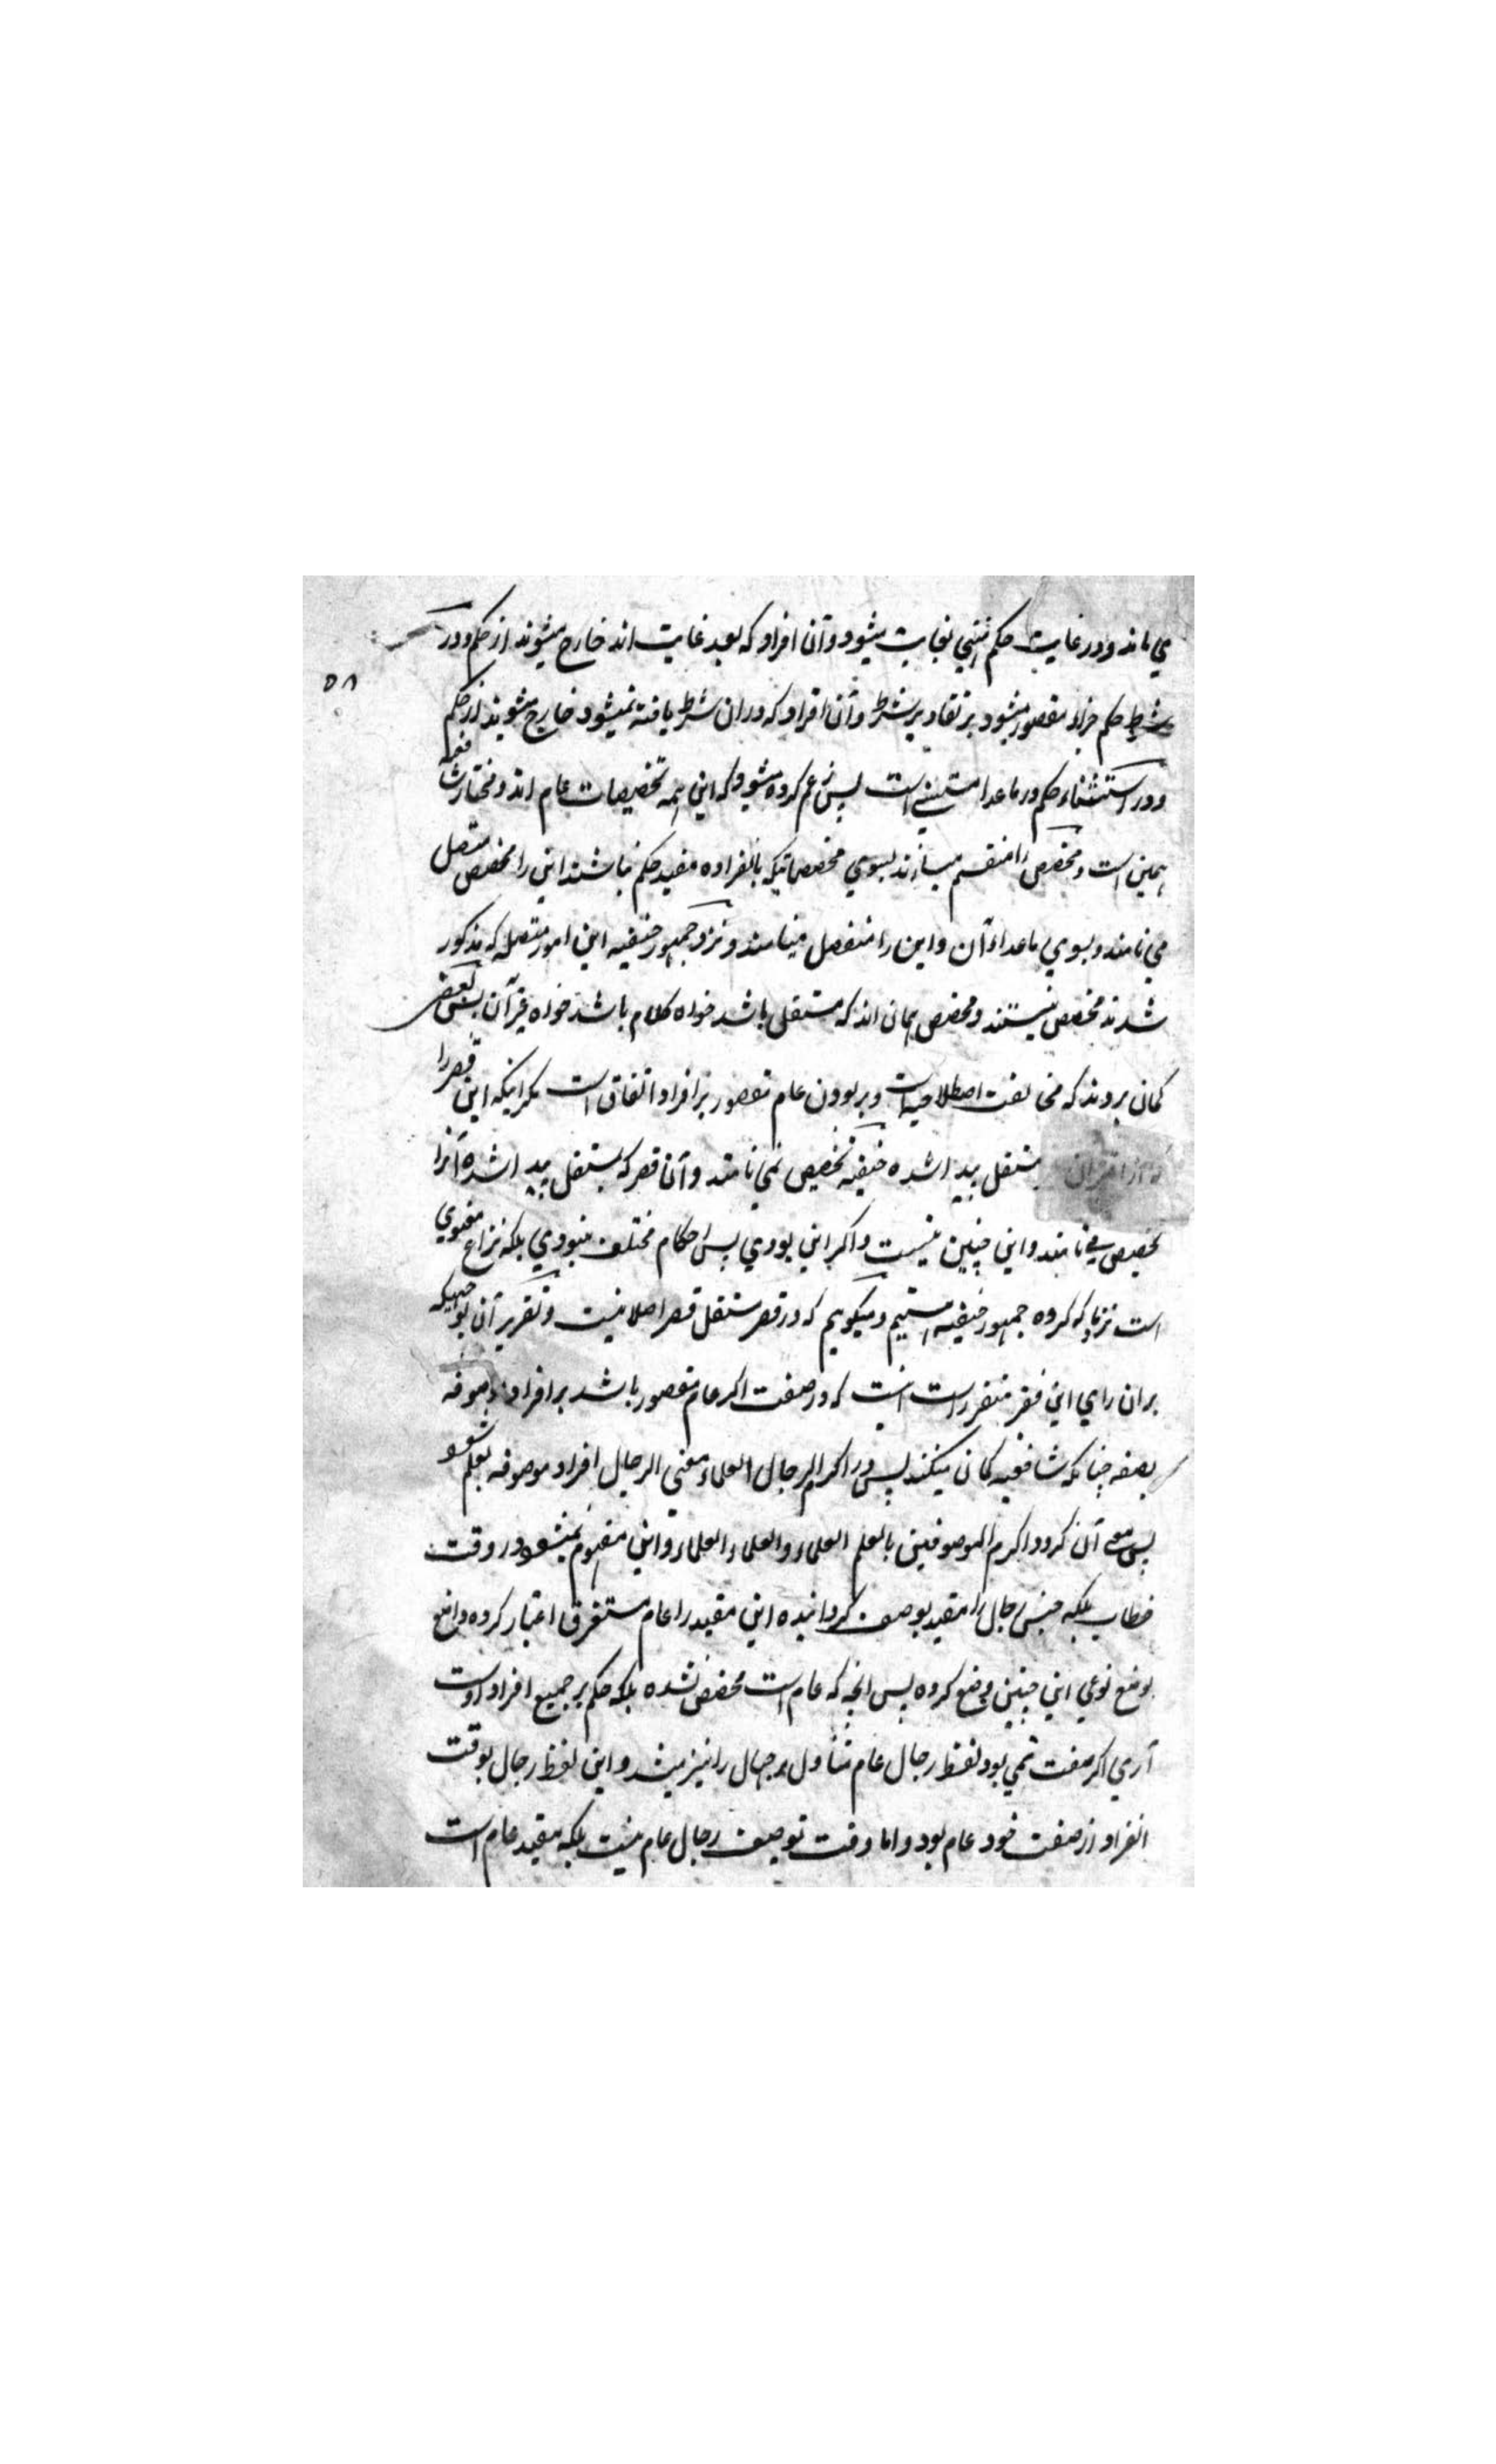 مي ماند و در غايت حكم منتهي بغايت ميشود و آن افراد كه بعد غايت اند خارج ميشوند از حكم و در
٥٨
شرط حكم جزاء مقصور ميشود بر تقادير شرط و آن افراد كه دران شرط يافته نميشود خارج ميشوند از حكم
و در استثناء حكم در ماعدا مستثنى است پس زعم كرده ميشود كه اين همه تخصيصات عام اند و مختار شافعيه
همين است و مخصص را منقسم ميسازند بسوي مخصصاتيكه بانفراده مفيد حكم نباشند اين را مخصص متصل
مي نامند و بسوي ماعداء آن و اين را منفصل مينامند و نزد جمهور حنفيه اين امور متصله كه مذكور
شدند مخصص نيستند و مخصص همان اند كه مستقل باشد خواه كلام باشد خواه غير آن پس بعض
گمان بردند كه مخالفت اصطلاحيست و بر بودن عام مقصور بر افراد اتفاق است مگر اينكه اين قصر را
بمستقل پيدا شده حنفيه تخصيص نمي نامند و آن قصر كه بمستقل پيدا شده آنرا
تخصيص مي نامند و اين چنين نيست و اگر اين بودي پس احكام مختلف نبودي بلكه نزاع معنوي
است نزد ما كه گروه جمهور حنفيه استيم و ميگوييم كه در قصر مستقل قصر اصلا نيست و تقرير آن بوجهيكه
بران راي اين فقير متقرر است اينست كه در صفت اگر عام مقصور باشد بر افراد موصوفه
بصفه چنانكه شافعيه گمان ميكنند پس در اكرم الرجال العلماء معني الرجال افراد موصوفه بعلم شود
پس معنى آن گردد اكرم الموصوفين بالعلم العلماء والعلماء العلماء و اين مفهوم نميشود در وقت
خطاب بلكه جنس رجال را مقيد بوصف گردانيده اين مقيد را عام مستغرق اعتبار كرده واضع
بوضع نوعي اين چنين وضع كرده پس انچه كه عام است مخصص نشده بلكه حكم بر جميع افراد اوست
آري اگر صفت نمي بود لفظ رجال عام متناول بر جهال را نيز ميشد و اين لفظ رجال بوقت
انفراد از صفت خود عام بود و اما وقت توصيف رجال عام نيست بلكه مقيد عام است